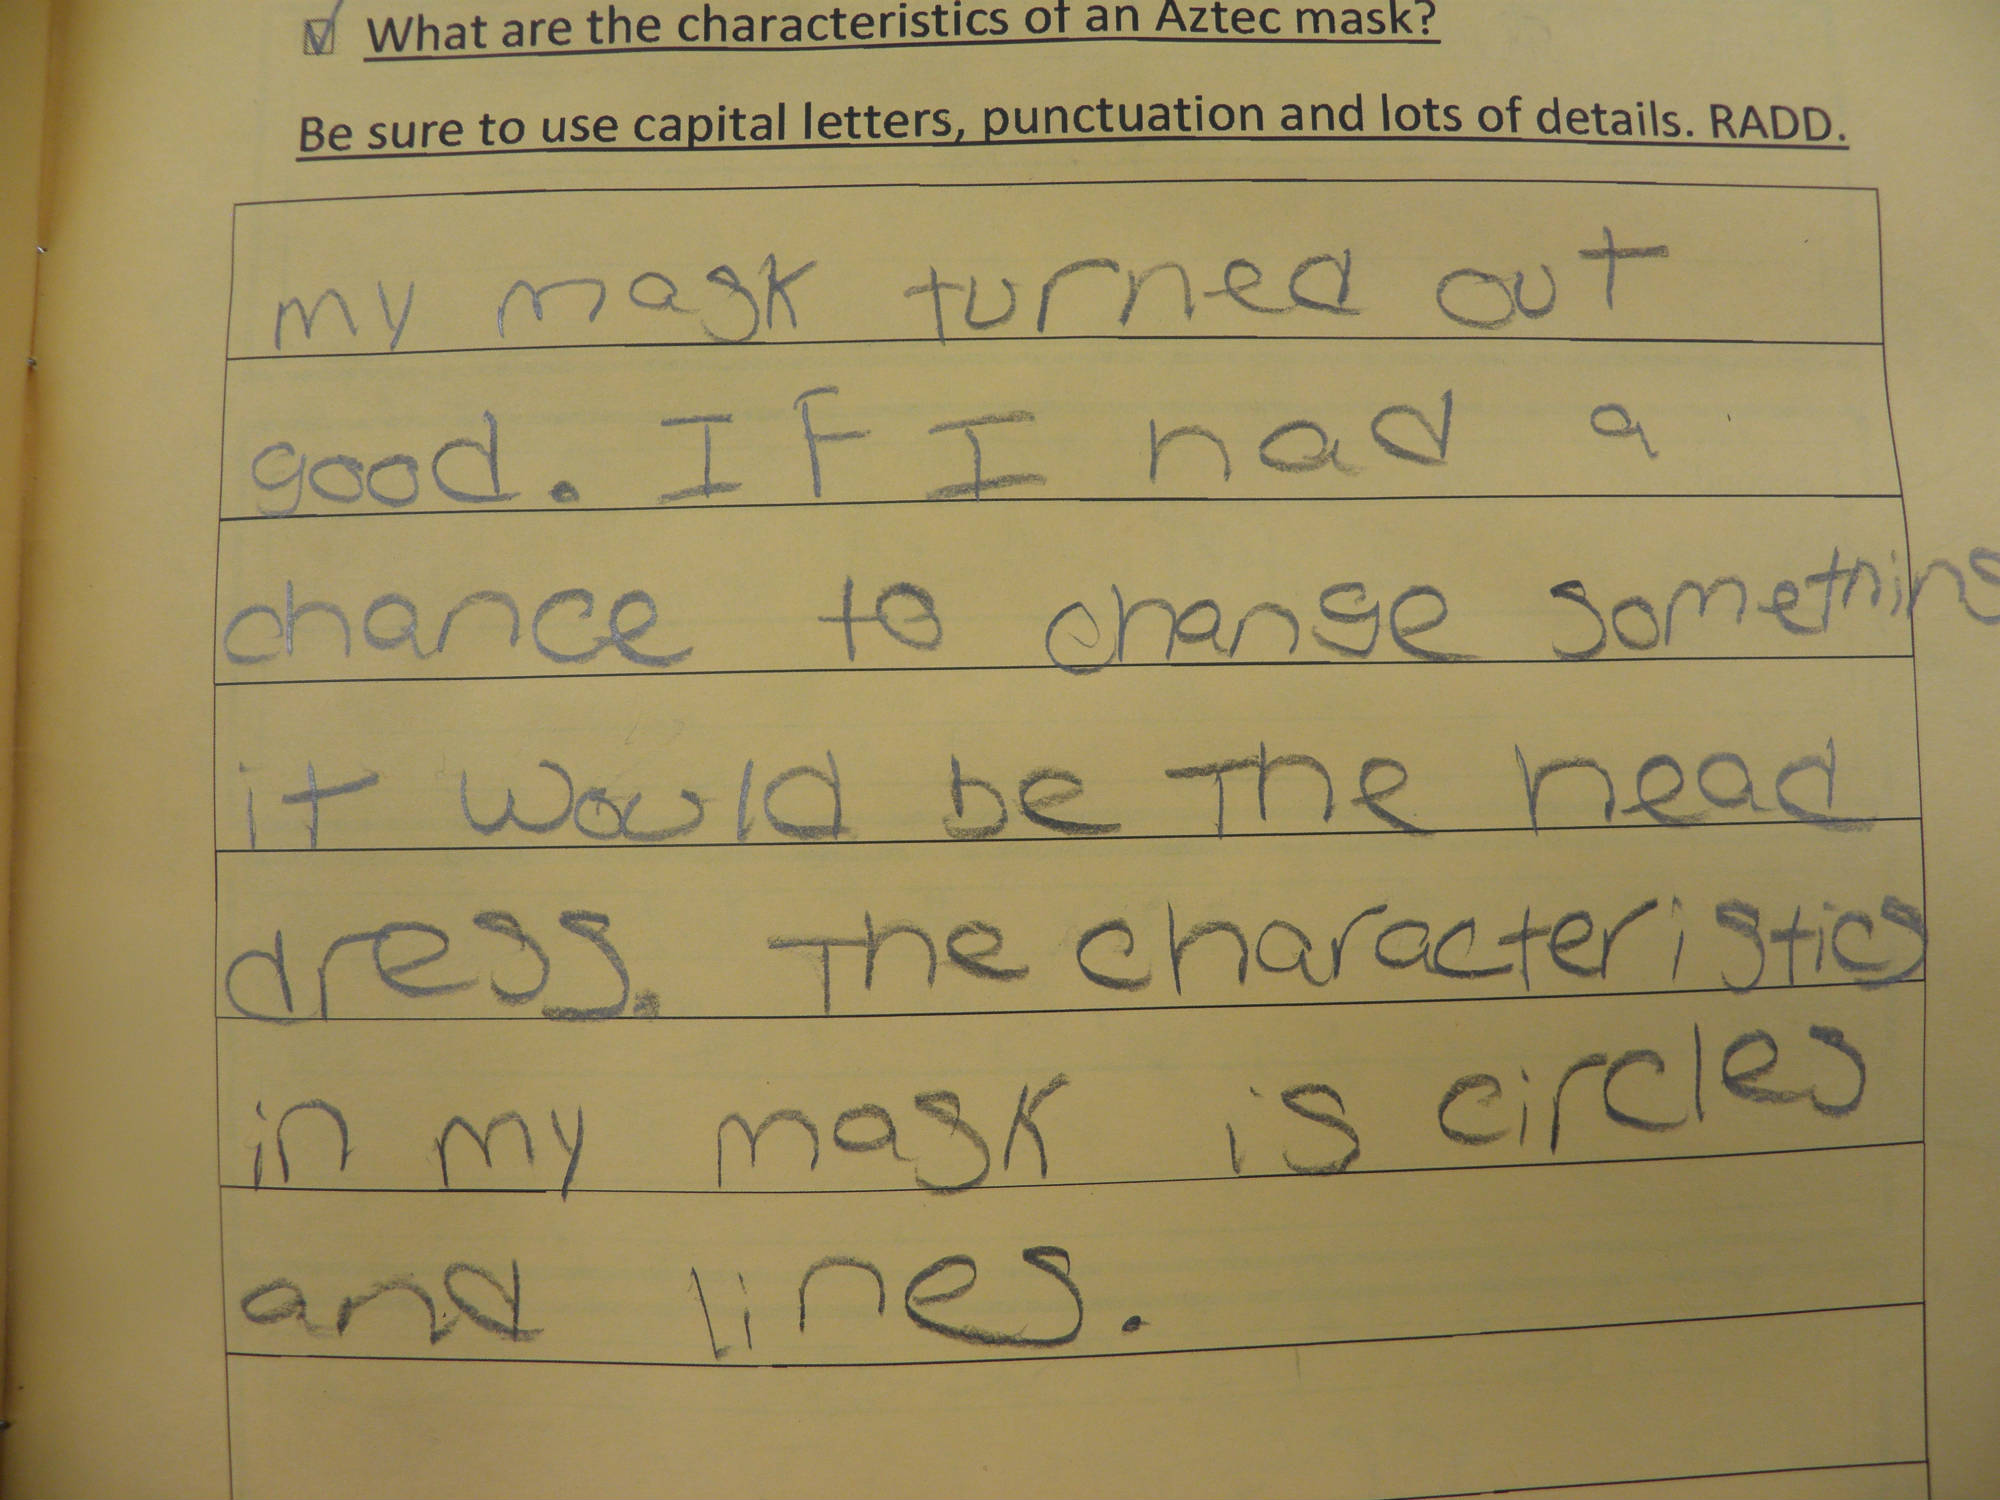 What are the characteristics of an Aztec mask?
Be sure to use capital letters, punctuation and lots of details. RADD.
my mask turned out
good. IF I had a
chance to change something
it would be The head
dress. The characteristics
in my mask is circles
and lines.